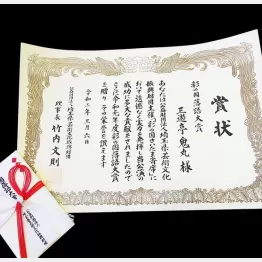 賞状
彩の国落語大賞
三遊亭鬼丸 様
あなたは公益財団法人埼玉県芸術文化
振興財団主催「彩の国さいたま寄席」に
おいて
成功に多大な貢献をされましたので
ここに令和元年度彩の国落語大賞
を贈り その栄誉を讃えます
令和二年三月六日
公益財団法人埼玉県芸術文化振興財団
理事長 竹内文則